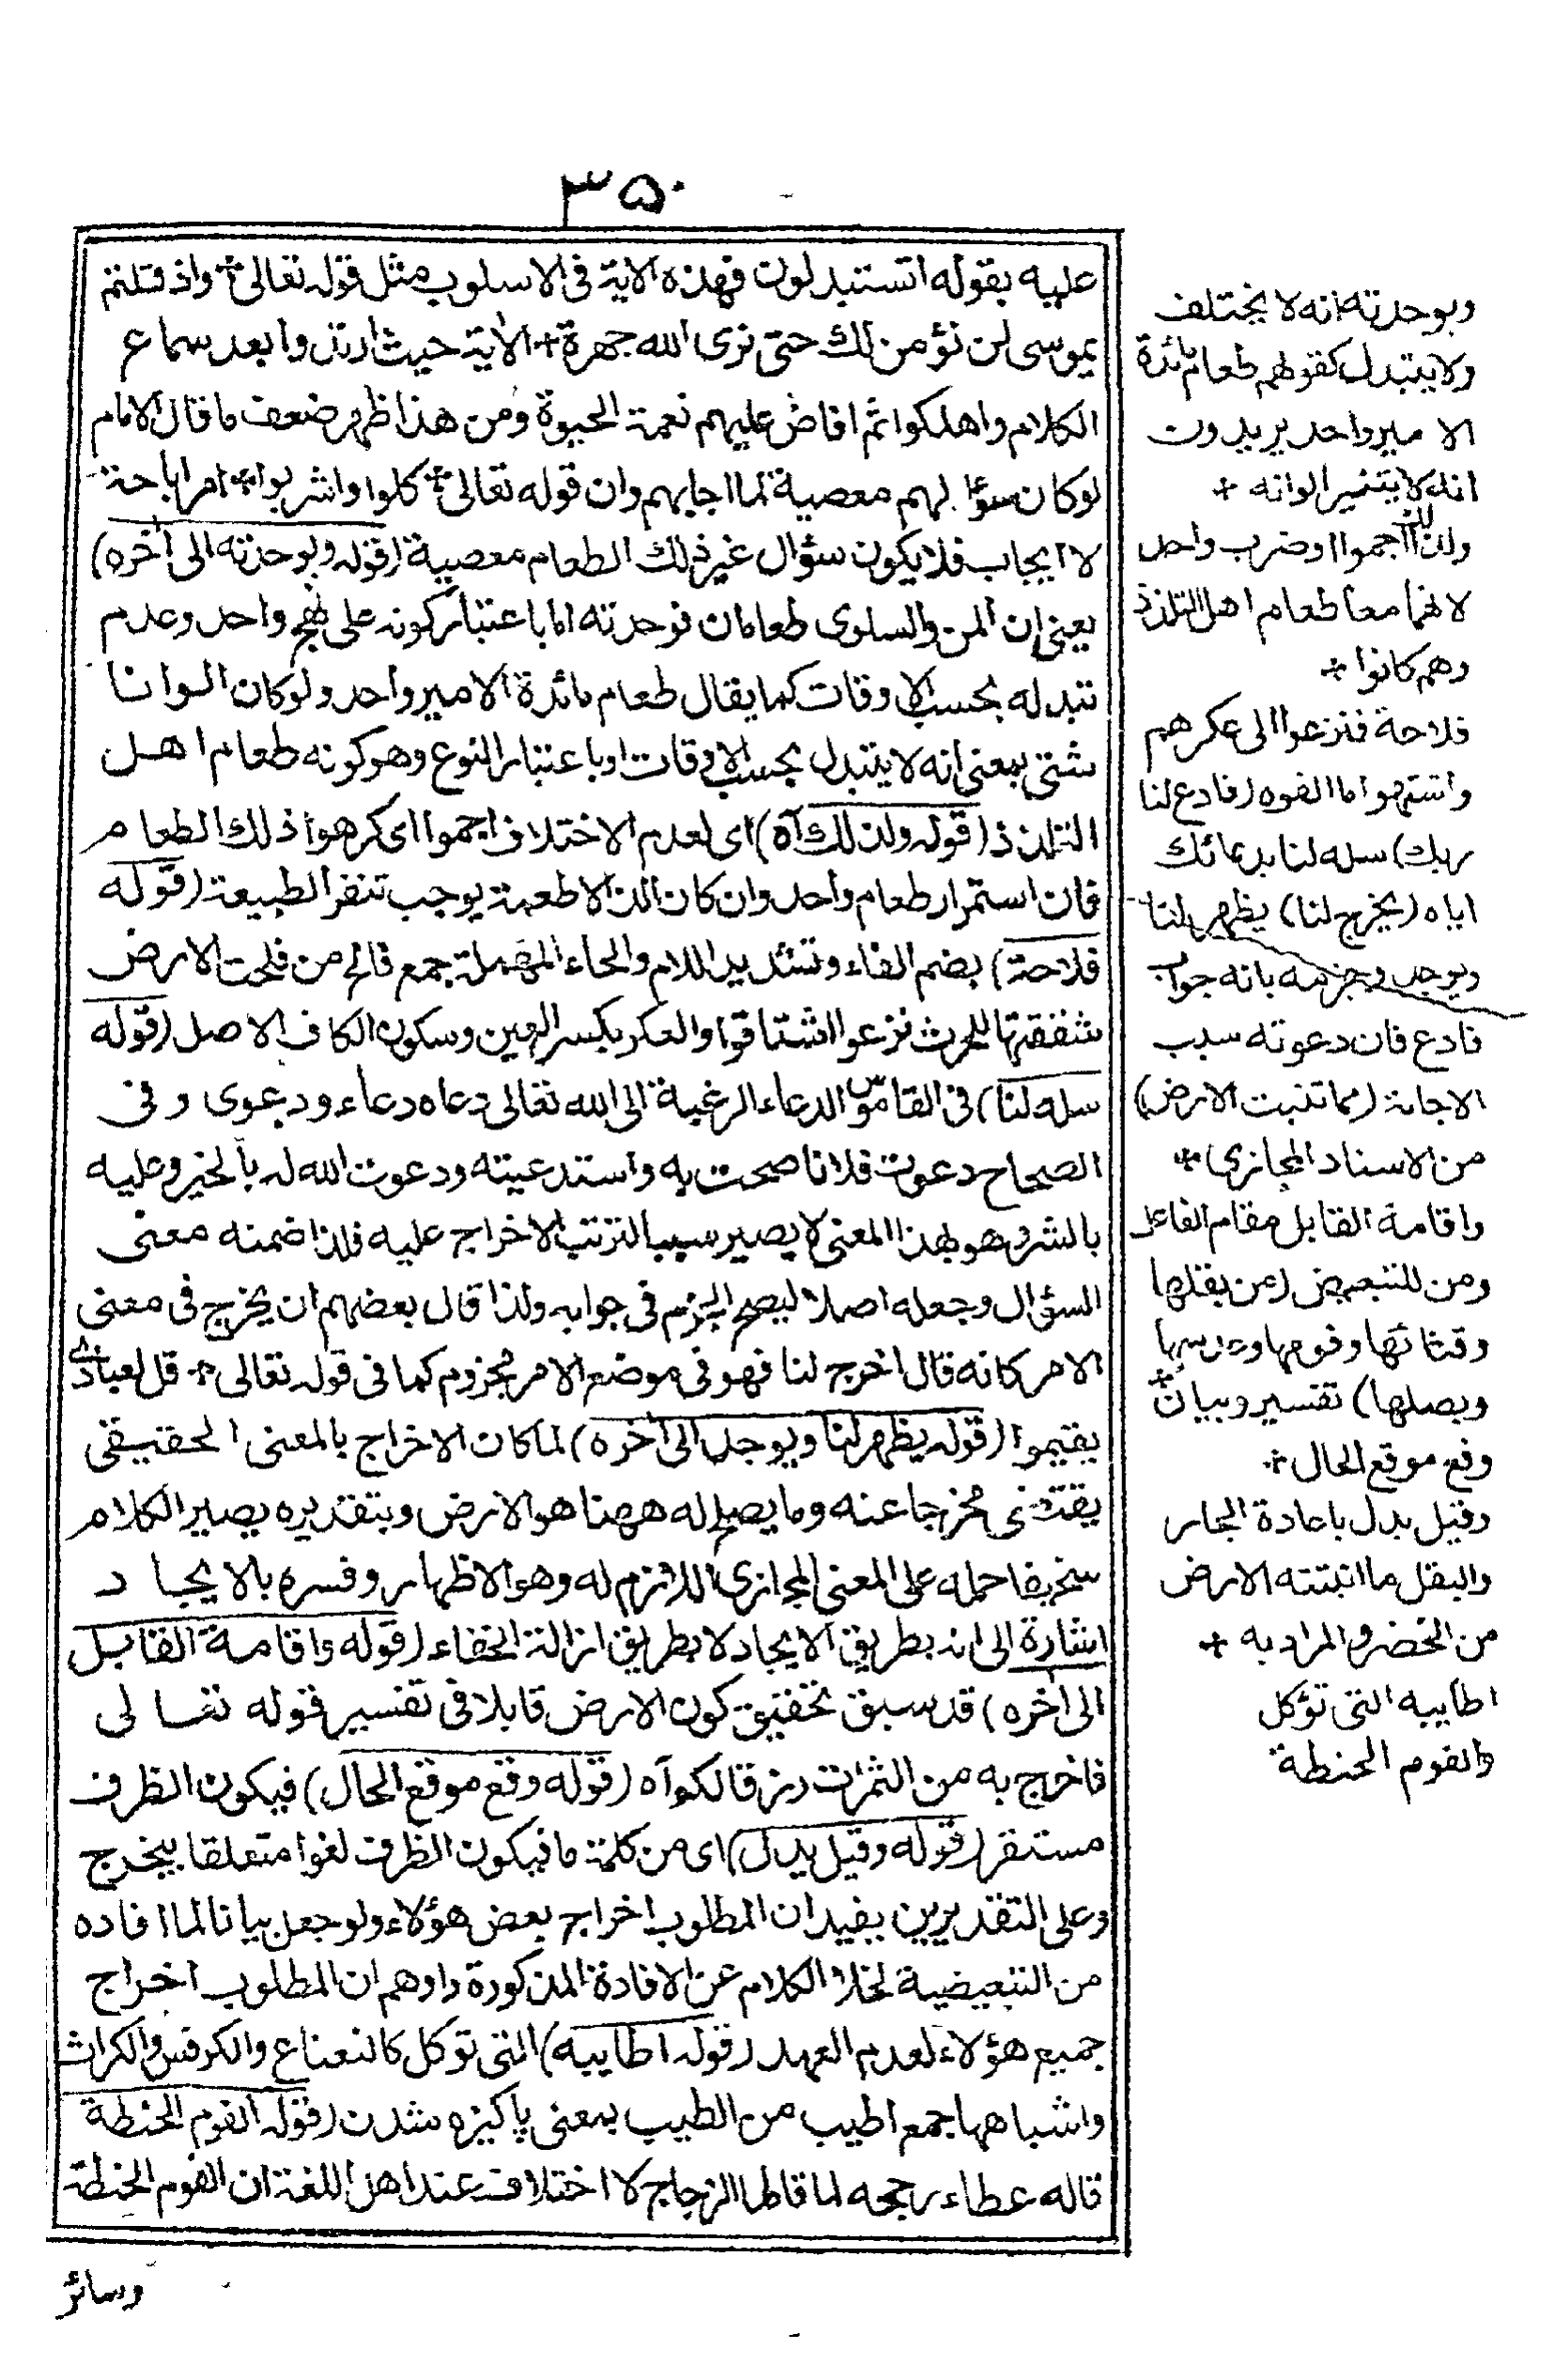 ٣٥٠
عليه بقوله اتستبدلون فهذه الاية فى الاسلوب مثل قوله تعالى * واذ قتلتم
يموسى لن نؤمن لك حتى نرى الله جهرة * الاية حيث ارتدوا بعد سماع
الكلام واهلكوا ثم افاض عليهم نعمة الحيوة ومن هذا ظهر ضعف ما قال الامام
لو كان سؤالهم معصية لما اجابهم وان قوله تعالى * كلوا واشربوا * امر اباحة
لا ايجاب فلا يكون سؤال غير ذلك الطعام معصية (قوله وبوحدته الى اخره)
يعنى ان المن والسلوى طعامان فوحدته اما باعتبار كونه على نهج واحد وعدم
تبدله بحسب الاوقات كما يقال طعام مائدة الامير واحد ولو كان الوانا
شتى بمعنى انه لا يتبدل بحسب الاوقات او باعتبار النوع وهو كونه طعام اهل
التلذذ (قوله ولذلك آه) اى لعدم الاختلاف اجموا اى كرهوا ذلك الطعام
فان استمرار طعام واحد وان كان الذ الاطعمة يوجب تنفر الطبيعة (قوله
فلاحة) بضم الفاء وتشديد اللام والحاء المهملة جمع فالح من فلحت الارض
شققتها للحرث نزعوا اشتاقوا والعكر بكسر العين وسكون الكاف الاصل (قوله
سله لنا) فى القاموس الدعاء الرغبة الى الله تعالى دعاه دعاء ودعوى وفى
الصحاح دعوت فلانا صحت به واستدعيته ودعوت الله له بالخير وعليه
بالشر وهو بهذا المعنى لا يصير سببا لترتب الاخراج عليه فلذا ضمنه معنى
السؤال وجعله اصلا ليصح الجزم فى جوابه ولذا قال بعضهم ان يخرج فى معنى
الامر كانه قال اخرج لنا فهو فى موضع الامر مجزوم كما فى قوله تعالى * قل لعبادى
يقيموا (قوله يظهر لنا ويوجد الى اخره) لما كان الاخراج بالمعنى الحقيقى
يقتضى مخرجا عنه وما يصلح له ههنا هو الارض وبتقديره يصير الكلام
سخيفا حمله على المعنى المجازى اللازم له وهو الاظهار وفسره بالايجاد
اشارة الى انه بطريق الايجاد لا بطريق ازالة الخفاء (قوله واقامة القابل
الى اخره) قد سبق تحقيق كون الارض قابلا فى تفسير قوله تعالى
فاخرج به من الثمرات رزقا لكم آه (قوله وقع موقع الحال) فيكون الظرف
مستقرا (قوله وقيل بدل) اى من كلمة ما فيكون الظرف لغوا متعلقا بيخرج
وعلى التقديرين يفيد ان المطلوب اخراج بعض هؤلاء ولو جعل بيانا لما افاده
من التبعيضية لخلا الكلام عن الافادة المذكورة واوهم ان المطلوب اخراج
جميع هؤلاء لعدم العهد (قوله اطايبه) التى توكل كالنعناع والكرفس والكراث
واشباهها جمع اطيب من الطيب بمعنى پاكيزه شدن (قوله الفوم الحنطة
قاله عطاء رجحه لما قال الزجاج لا اختلاف عند اهل اللغة ان الفوم الحنطة
وسائر
وبوحدته انه لا يختلف
ولا يتبدل كقولهم طعام مائدة
الامير واحد يريدون
انه لا يتغير الوانه *
ولذلك اجموا او ضرب واحد
لانهما معا طعام اهل التلذذ
وهم كانوا *
فلاحة فنزعوا الى عكرهم
واشتهوا ما الفوه (فادع لنا
ربك) سله لنا بدعائك
اياه (يخرج لنا) يظهر لنا
ويوجد وجزمه بانه جواب
فادع فان دعوته سبب
الاجابة (مما تنبت الارض)
من الاسناد المجازى *
واقامة القابل مقام الفاعل
ومن للتبعيض (من بقلها
وقثائها وفومها وعدسها
وبصلها) تفسير وبيان *
وقع موقع الحال *
وقيل بدل باعادة الجار
والبقل ما انبتته الارض
من الخضر والمراد به *
اطايبه التى تؤكل
والفوم الحنطة